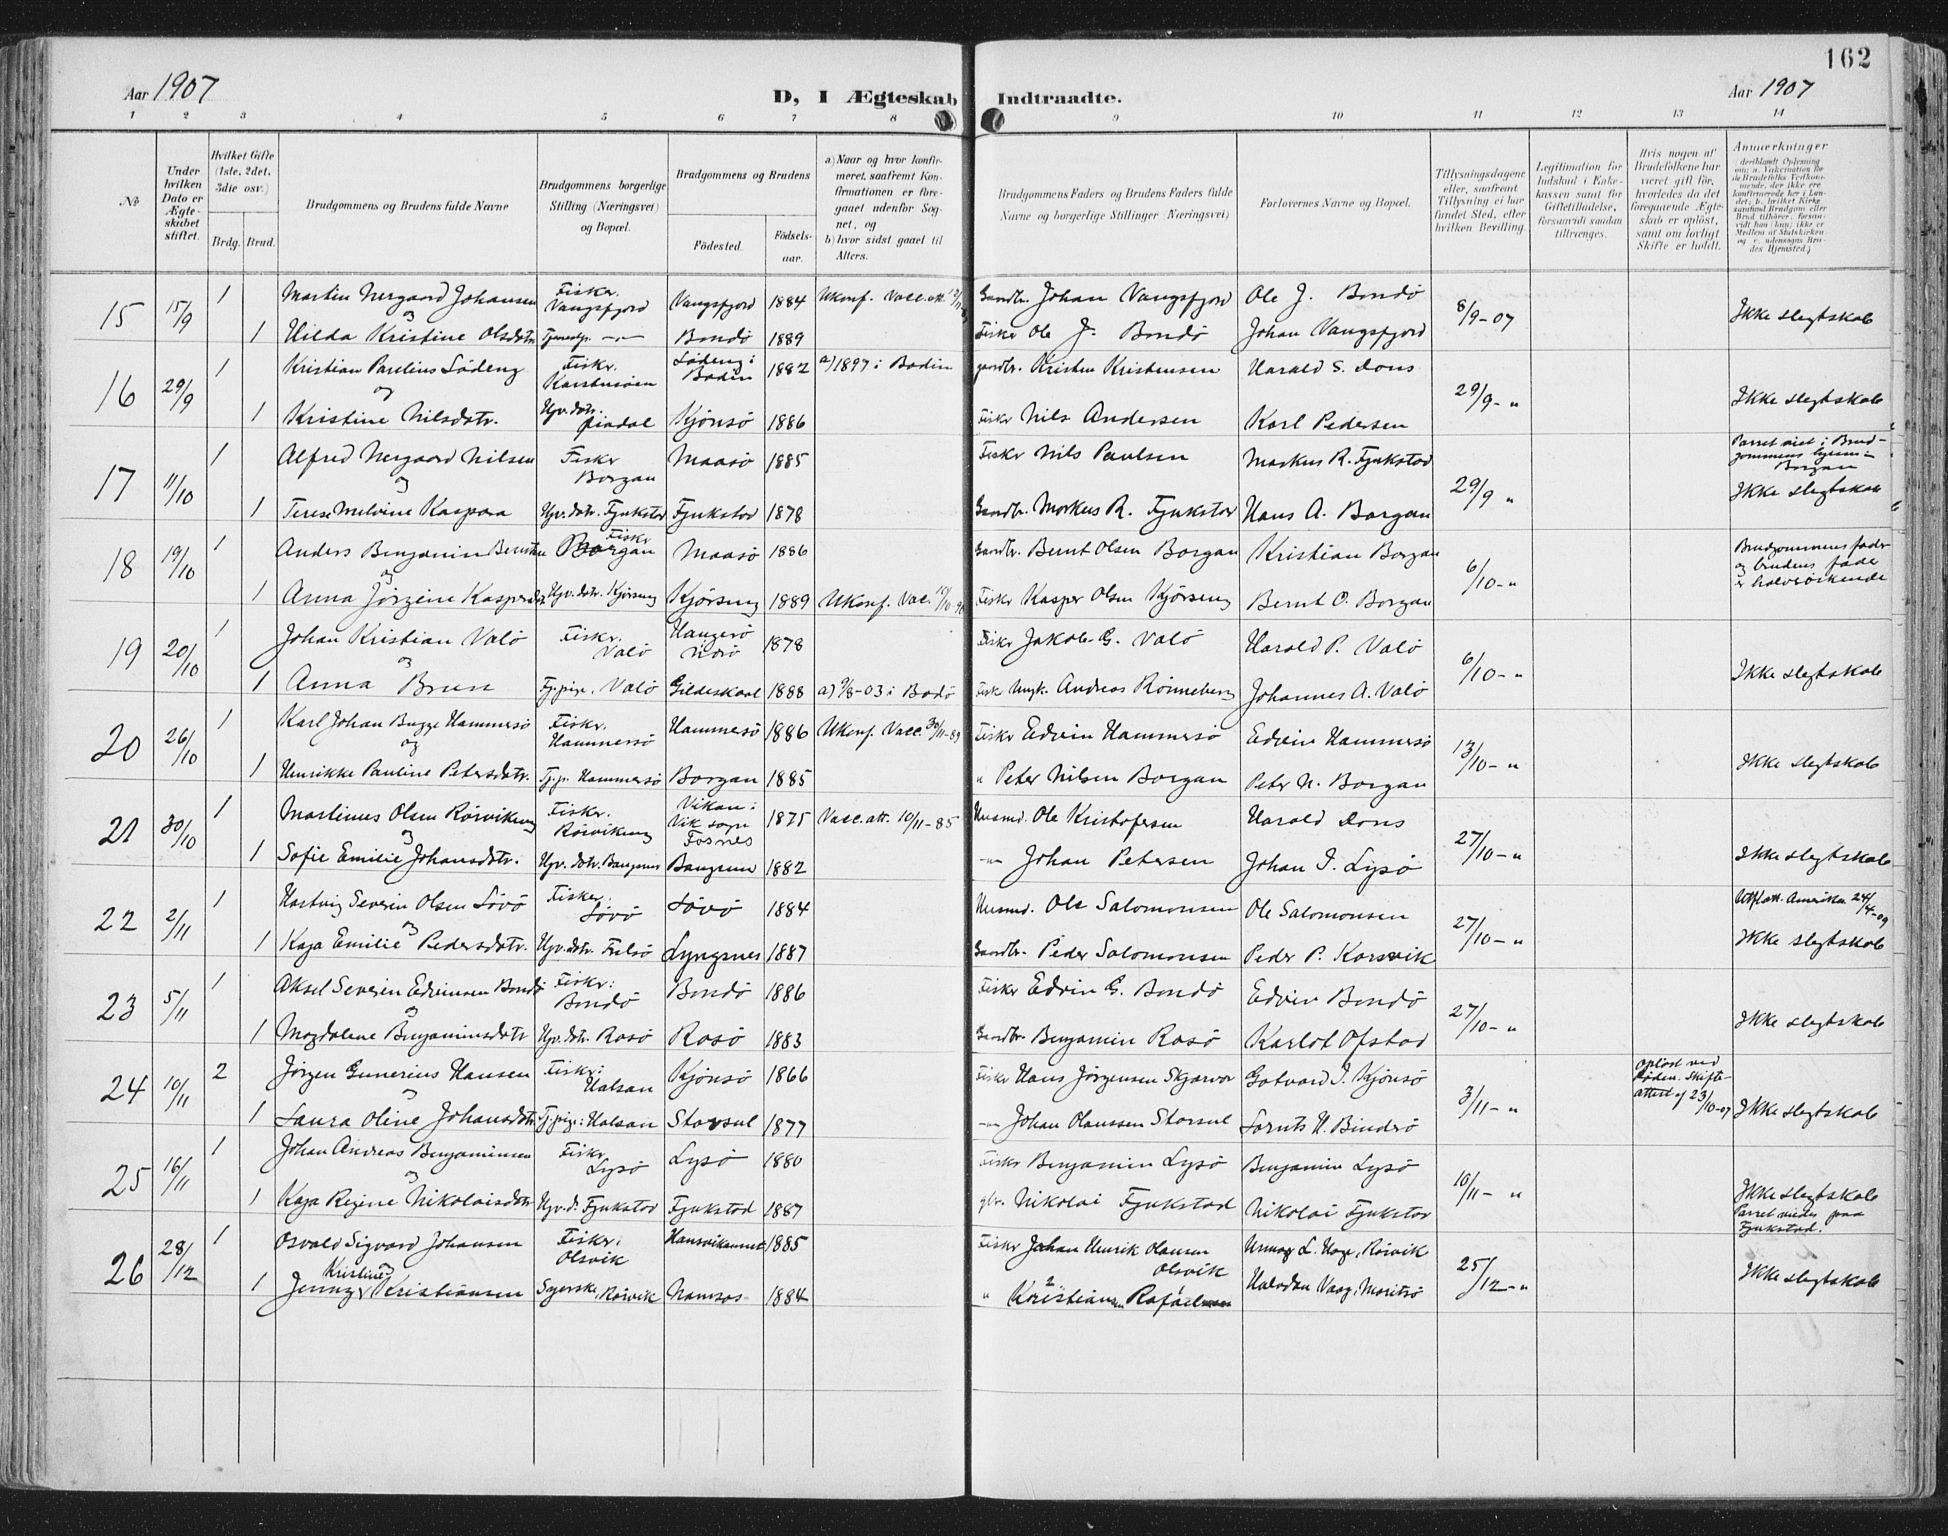 162
Aar 1907
D, I Ægteskab Indtraadte.
Aar 1907
1 2 3 4 5 6 7 8 9 10 11 12 13 14
No
Under hvilken Dato er Ægteskabet stiftet.
Hvilket Gifte (1ste, 2det, 3die osv.)
Brdg. Brud.
Brudgommens og Brudens fulde Navne
Brudgommens borgerlige Stilling (Næringsvei) og Bopæl.
Brudgommens og Brudens
Fødested.
Fødselsaar.
a) Naar og hvor konfirmeret, saafremt Konfirmationen er foregaaet udenfor Sognet, og
b) hvor sidst gaaet til Alters.
Brudgommens Faders og Brudens Faders fulde Navne og borgerlige Stillinger (Næringsvei)
Forlovernes Navne og Bopæl.
Tillysningsdagene eller, saafremt Tillysning ei har fundet Sted, efter hvilken Bevilling.
Legitimation for Indskud i Enkekassen samt for Giftetilladelse, forsaavidt saadan tiltrænges.
Hvis nogen af Brudefolkene har været gift før, hvorledes da det foregaaende Ægteskab er opløst, samt om lovligt Skifte er holdt.
Anmerkninger
15 15/9 1 Martin Nergaard Johansen Fisker. Vangsfjord Vangsfjord 1884 Ukonf. Vacc. att. Gaardbr. Johan Vangsfjord Ole J. Bondø 8/9-07 Ikke slegtskab
og
1 Hilda Kristine Olsdatr. Tjenestp. -"- Bondø 1889 Fisker Ole J. Bondø Johan Vangsfjord
16 29/9 1 Kristian Paulius Løding Fiskr. Løding i Bodin 1882 a) 1897 i Bodin gaardbr. Kristen Kristensen Harald S. Dons 29/9- " Ikke slegtskab
og
1 Kristine Nilsdatr. Hjv. datr. Kjønsø 1886 Fiskr Nils Andersen Karl Pedersen
17 11/10 1 Alfred Nergaard Nilsen Fiskr Borgan Maasø 1885 Fiskr Nils Paulsen Markus R. Fjukstad 29/9 " Parret viet i Brudgommens hjem - Borgan
Ikke slegtskab
og
1 Terese Melvine Kaspara Hjv. datr. Fjukstad Fjukstad 1878 Gaardbr. Markus R. Fjukstad Hans A. Borgan
18 19/10 1 Anders Benjamin Berntsen Fiskr Borgan Maasø 1886 Gaardbr. Bernt Olsen Borgan Kristian Borgan 6/10- " Brudgommens fader og brudens fader er halvsøskende
og
1 Anna Jørgine Kaspersdatr. Hjv. datr. Kjørsing Kjørsing 1889 Ukonf. Vac. Fiskr Kasper Olsen Kjørseng Bernt O. Borgan
19 20/10 1 Johan Kristian Valø Fiskr. Valø 1878 Fiskr Jakob G. Valø Harald P. Valø 6/10- " Ikke slegtskab
og
1 Anna Brun Tj. pige. Valø Gildeskaal 1888 a) 9/8-03 i Bodø Andreas Rønneberg Johannes A. Valø
20 26/10 1 Karl Johan Bugge Hammersø Fiskr. Hammersø Hammersø 1886 Ukonf. Vacc. 30/11-89 Fiskr Edvin Hammersø Edvin Hammersø 13/10- " Ikke slegtskab
og
1 Henrikke Pauline Petersdatr. Tj. p. Hammersø Borgan 1885 " Peter Nilsen Borgan Peter N. Borgan
21 30/10 1 Martinus Olsen Rørvikseng Fiskr. Rørvikseng Vikan i Vik sogn Fosnes 1875 Vacc. att. 10/11-85 Husmd. Ole Kristofersen Harald Dons 27/10- " Ikke slegtskab
og
1 Sofie Emilie Johansdatr. Hjv. datr. 1882 -"- Johan Petersen Johan J. Lysø
22 2/11 1 Hartvig Severin Olsen Søvø Fisker. Søvø Søvø 1884 Husmd. Ole Salomonsen Ole Salomonsen 27/10- " Utfl. att. Amerika 24/4-09
Ikke slegtskab
og
1 Kaja Emilie Pedersdatr. Hjv. datr. Lyngsnes 1887 Gaardbr. Peder Salomonsen Peder P. Korsvik
23 5/11 1 Aksel Severin Edvinsen Bondø Fiskr: Bondø Bondø 1886 Fiskr Edvin G. Bondø Edvin Bondø 27/10- " Ikke slegtskab
og
1 Magdalene Benjaminsdatr Hjv. datr. Rosø Rosø 1883 Gaardbr. Benjamin Rosø Karlot Ofstad
24 10/11 2 Jørgen Gunerius Hansen Fiskr: Halsan Kjønsø 1866 Fiskr Hans Jørgensen Skjærvø Gotvard J. Kjønsø 3/11- " opløst ved Døden. Skifteattest af 23/10-07 Ikke slegtskab
1 Laura Oline Johansdatr. Tj. pige: Halsan Storsul 1877 -"- Johan Olaussen Storsul Lornts H. Bindrø
25 16/11 1 Johan Andreas Benjaminsen Fiskr. Lysø Lysø 1880 Fiskr Benjamin Lysø Benjamin Lysø 10/11- " Ikke slegtskab
Parret viedes paa Fjukstad.
og
1 Kaja Regine Nikolaisdatr. Hjv. d. Fjukstad Fjukstad 1887 gbr. Nikolai Fjukstad Nikolai Fjukstad
26 28/12 1 Osvald Sigvard Johansen Fiskr: Olsvik 1885 Fiskr Johan Henrik Olausen Olsvik L. Hage, Rørvik 25/12- " Ikke slegtskab
og
1 Jenny Kristine Kristiansen Syerske, Rørvik Namsos 1884 " Kristian Rafael Halvdan Vaag,